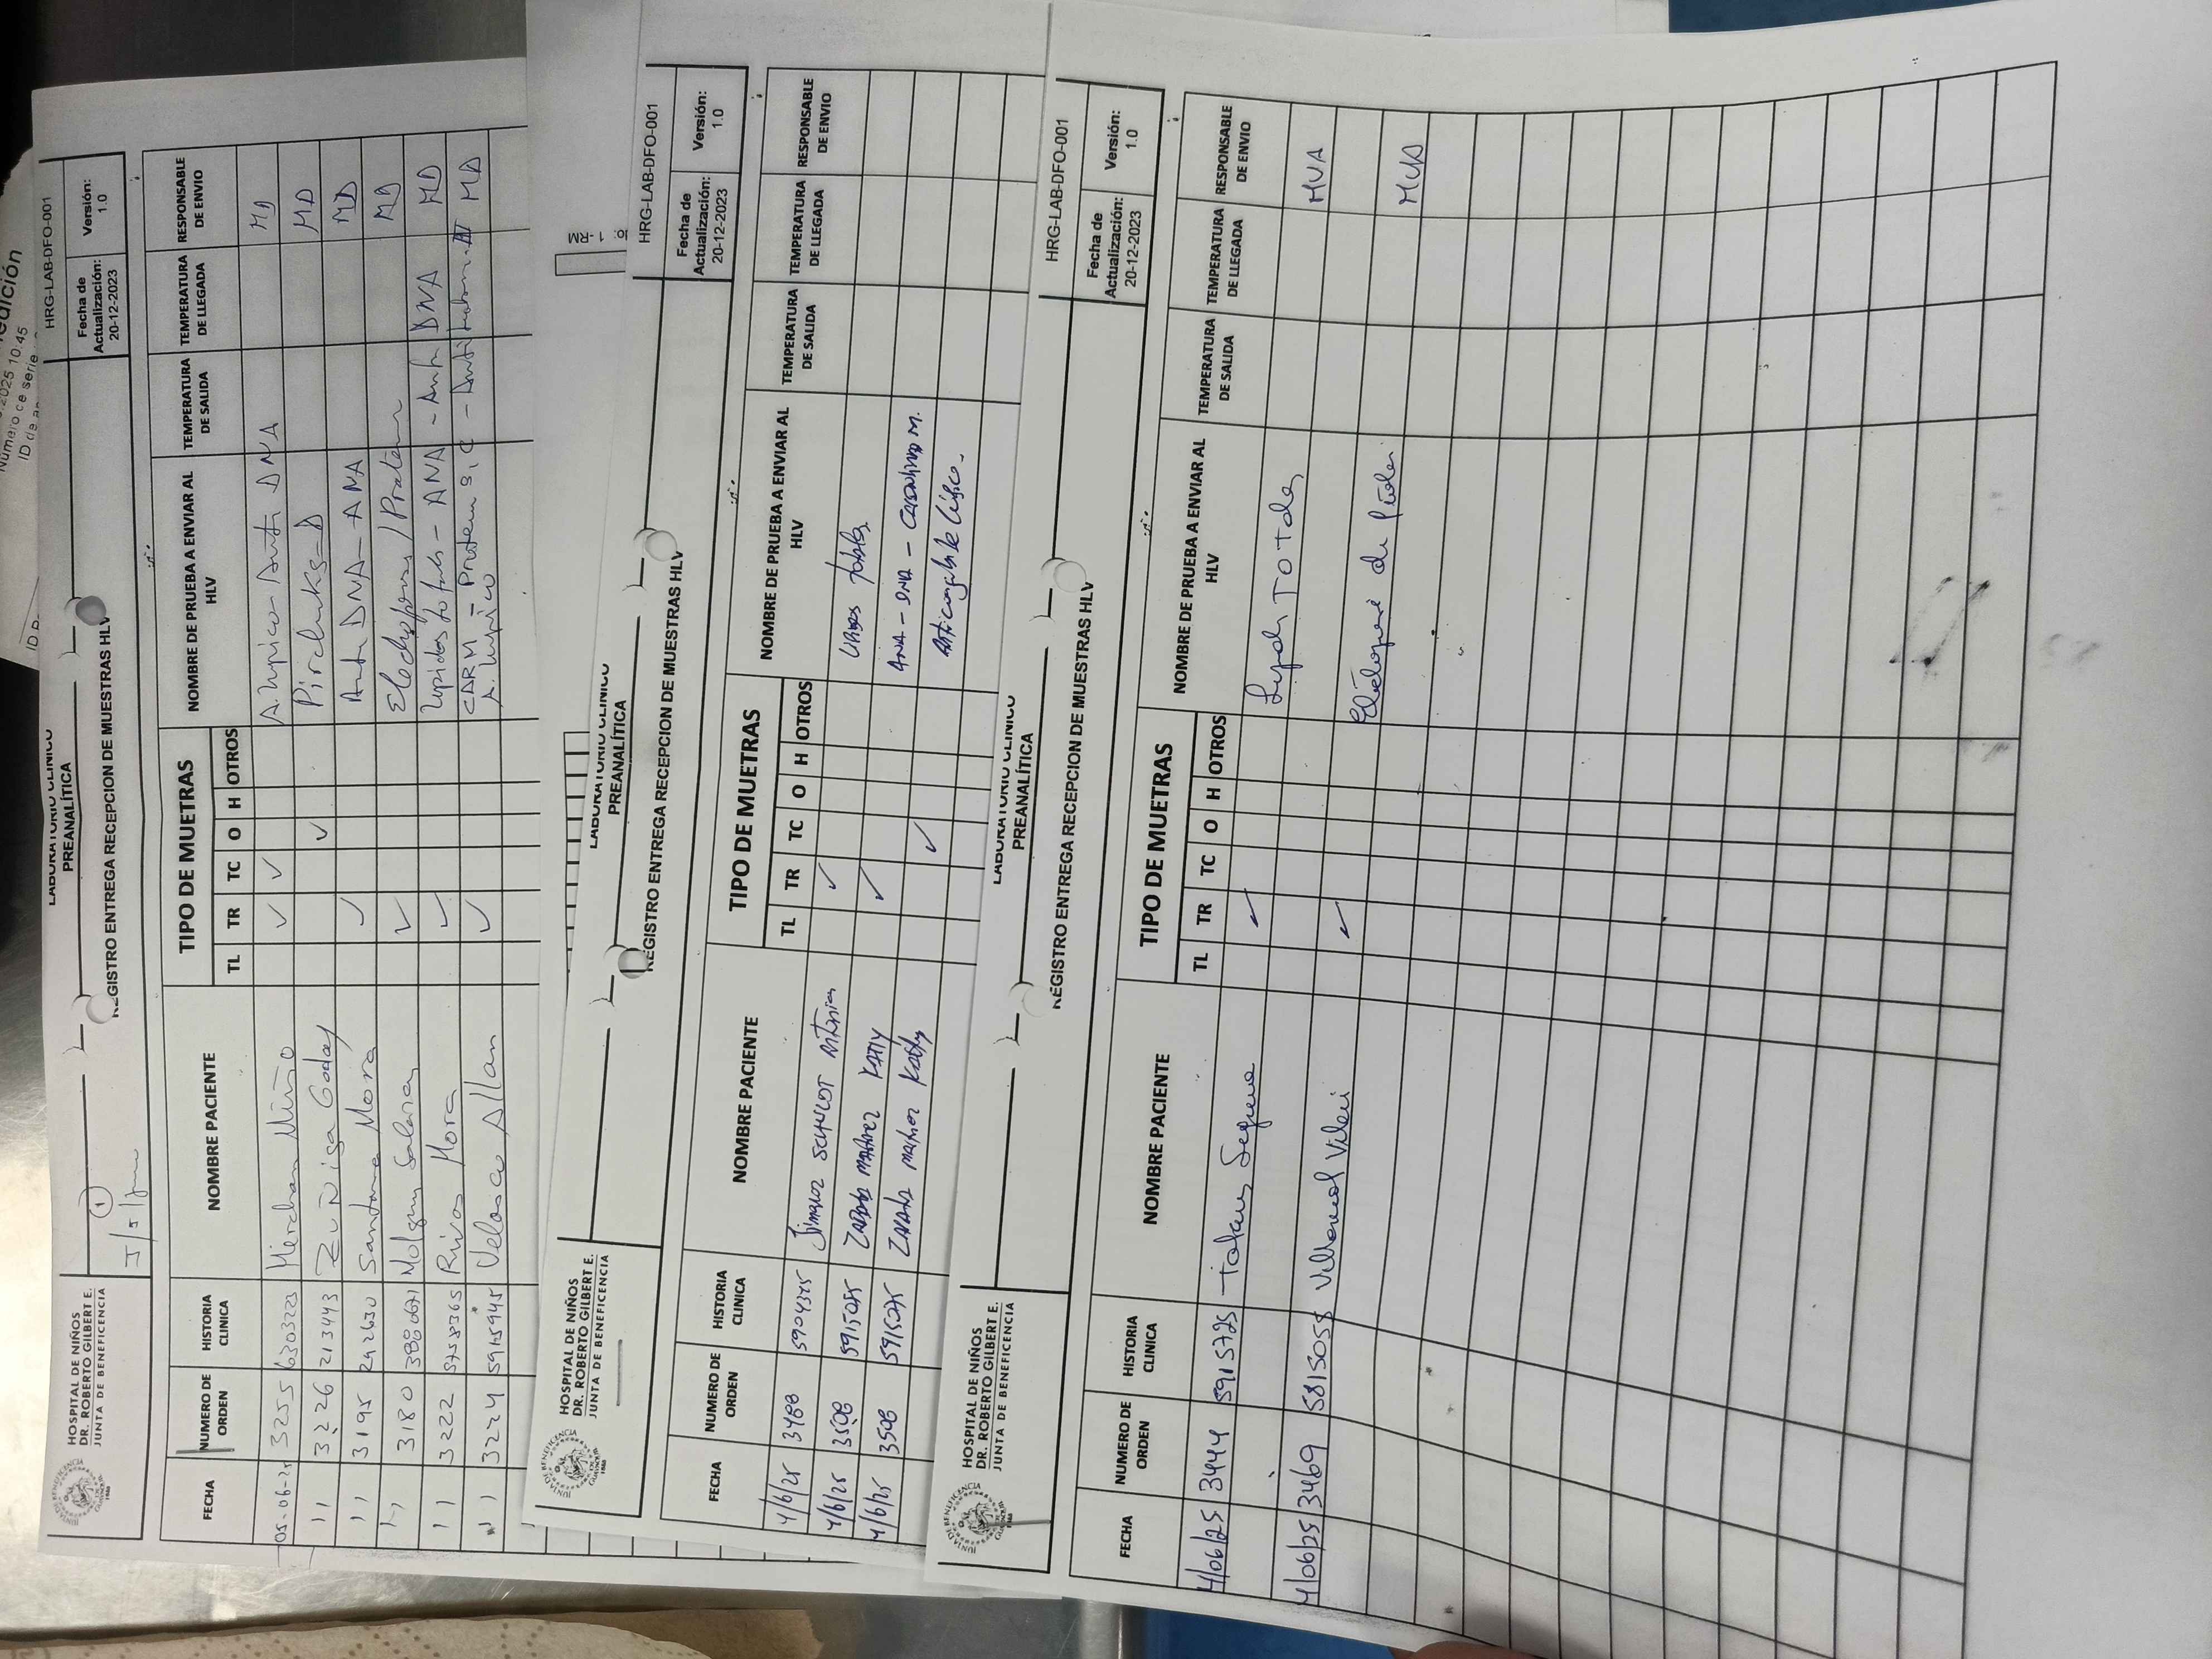 edición
2025 10:45
Número de serie
ID de
ID P
HRG-LAB-DFO-001
LABORATORIO CLINICO
PREANALÍTICA
Fecha de Actualización: 20-12-2023
Versión: 1.0
HOSPITAL DE NIÑOS
DR. ROBERTO GILBERT E.
JUNTA DE BENEFICENCIA
1
REGISTRO ENTREGA RECEPCION DE MUESTRAS HLV
FECHA NUMERO DE ORDEN HISTORIA CLINICA NOMBRE PACIENTE TIPO DE MUETRAS NOMBRE DE PRUEBA A ENVIAR AL HLV TEMPERATURA DE SALIDA TEMPERATURA DE LLEGADA RESPONSABLE DE ENVIO
TL TR TC O H OTROS
05-06-25 3255 6303223 Merchan Miño ✓ ✓ A. Lupico - Anti DNA MD
11 3226 213443 Zuñiga Godoy ✓ MD
11 3195 242630 Santana Mora ✓ Anti DNA - AMA MD
11 3180 Salazar ✓ MD
11 3222 5758365 Rivas Mora ✓ Lupidos totals - ANA - Anti DNA MD
11 3224 5915945 Velasco Allan ✓ CARM - Protein S, C - MD
A. Lupico
HRG-LAB-DFO-001
LABORATORIO CLINICO
PREANALÍTICA
Fecha de Actualización: 20-12-2023
Versión: 1.0
HOSPITAL DE NIÑOS
DR. ROBERTO GILBERT E.
JUNTA DE BENEFICENCIA
REGISTRO ENTREGA RECEPCION DE MUESTRAS HLV
FECHA NUMERO DE ORDEN HISTORIA CLINICA NOMBRE PACIENTE TIPO DE MUETRAS NOMBRE DE PRUEBA A ENVIAR AL HLV TEMPERATURA DE SALIDA TEMPERATURA DE LLEGADA RESPONSABLE DE ENVIO
TL TR TC O H OTROS
4/6/25 3488 5904325 ✓ totales
4/6/25 3508 5915075 Katty ✓ ANA - DNA -
4/6/25 3508 5915075 Katty ✓ Anticoagulante Lúpico.
HRG-LAB-DFO-001
LABORATORIO CLINICO
PREANALÍTICA
Fecha de Actualización: 20-12-2023
Versión: 1.0
HOSPITAL DE NIÑOS
DR. ROBERTO GILBERT E.
JUNTA DE BENEFICENCIA
REGISTRO ENTREGA RECEPCION DE MUESTRAS HLV
FECHA NUMERO DE ORDEN HISTORIA CLINICA NOMBRE PACIENTE TIPO DE MUETRAS NOMBRE DE PRUEBA A ENVIAR AL HLV TEMPERATURA DE SALIDA TEMPERATURA DE LLEGADA RESPONSABLE DE ENVIO
TL TR TC O H OTROS
4/06/25 3444 5915725 ✓ TOtales MVA
4/06/25 3469 5815055 Villarreal ✓ de MVA